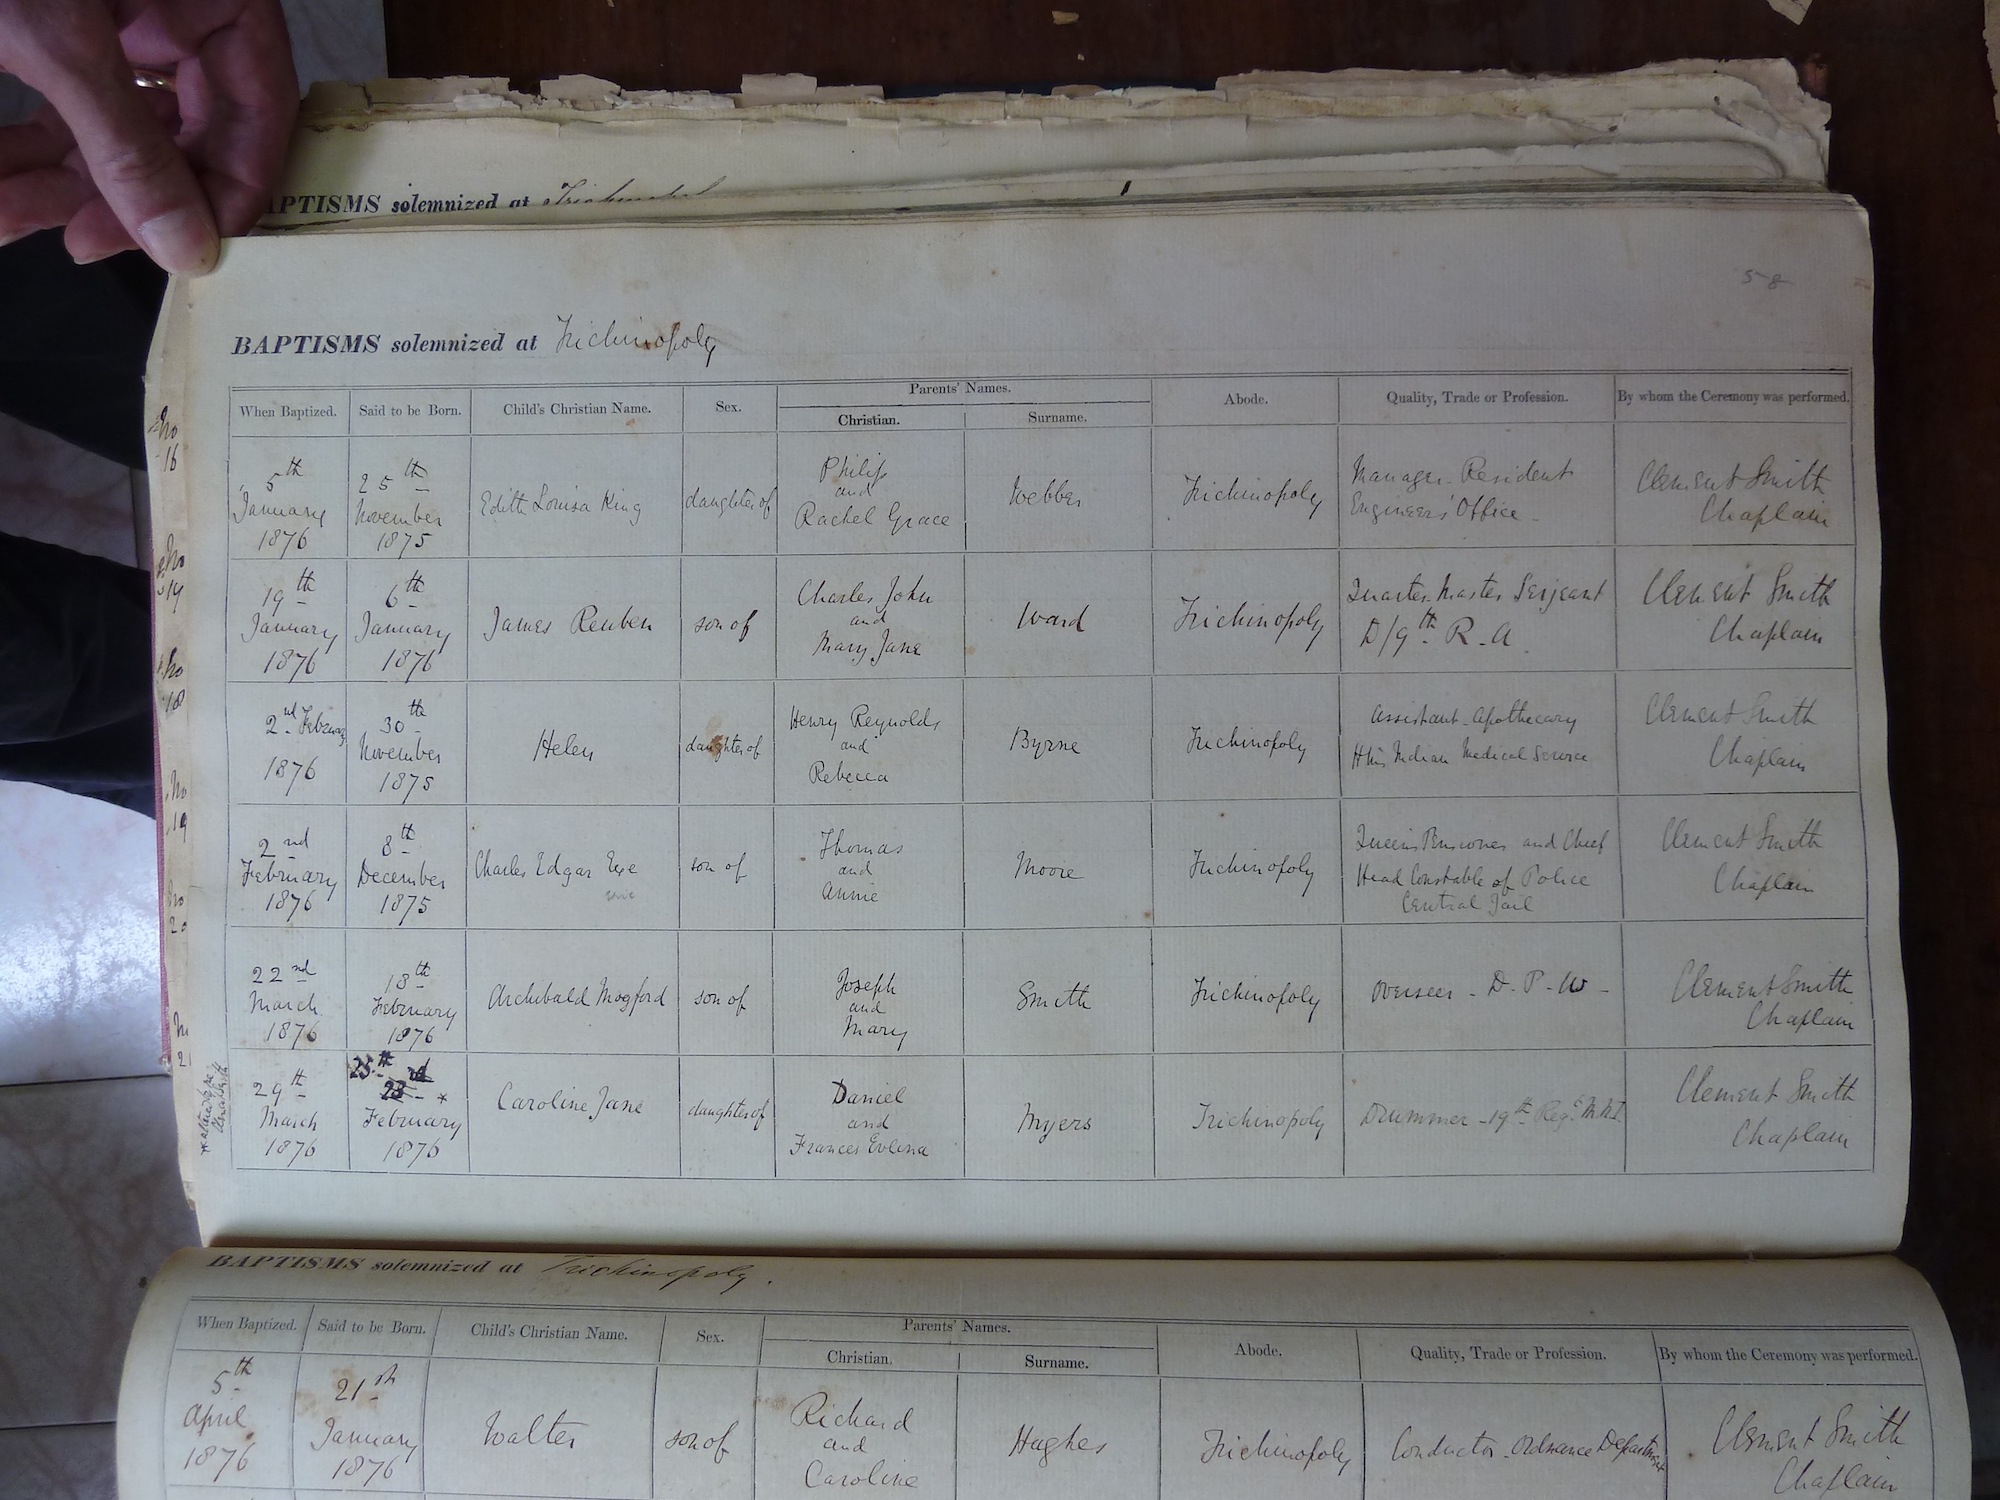 BAPTISMS solemnized at
58
BAPTISMS solemnized at Trichinopoly
Parents' Names.
When Baptized. Said to be Born. Child's Christian Name. Sex. Christian. Surname. Abode. Quality, Trade or Profession. By whom the Ceremony was performed.
No
16
5th January 1876
25th November 1875
Edith Louisa King
daughter of
Philip
and
Rachel Grace
Webber
Trichinopoly
Manager Resident
Engineers' Office
Clement Smith
Chaplain
19th January 1876
6th January 1876
James Reuben
son of
Charles John
and
Mary Jane
Ward
Trichinopoly
Quarter Master Serjeant
D/9th R. A
Clement Smith
Chaplain
No
18
2nd February
1876
30th November 1875
Helen
daughter of
Henry Reynolds
and
Rebecca
Byrne
Trichinopoly
Assistant Apothecary
Indian Medical Service
Clement Smith
Chaplain
No
19
2nd February 1876
8th December 1875
Charles Edgar
son of
Thomas
and
Annie
Moore
Trichinopoly
and Chief
Head Constable of Police
Central Jail
Clement Smith
Chaplain
20
22nd March 1876
13th February 1876
Archibald Mogford
son of
Joseph
and
Mary
Smith
Trichinopoly
Overseer - D. P. W -
Clement Smith
Chaplain
21
29th March 1876
25th
23rd *
February 1876
Caroline Jane
daughter of
Daniel
and
Frances Evlina
Myers
Trichinopoly
Drummer - 19th Regt M.N.I.
Clement Smith
Chaplain
BAPTISMS solemnized at Trichinopoly.
Parents' Names.
When Baptized. Said to be Born. Child's Christian Name. Sex. Christian. Surname. Abode. Quality, Trade or Profession. By whom the Ceremony was performed.
5th April 1876
21st January 1876
Walter
son of
Richard
and
Caroline
Hughes
Trichinopoly
Conductor Ordnance Department
Clement Smith
Chaplain